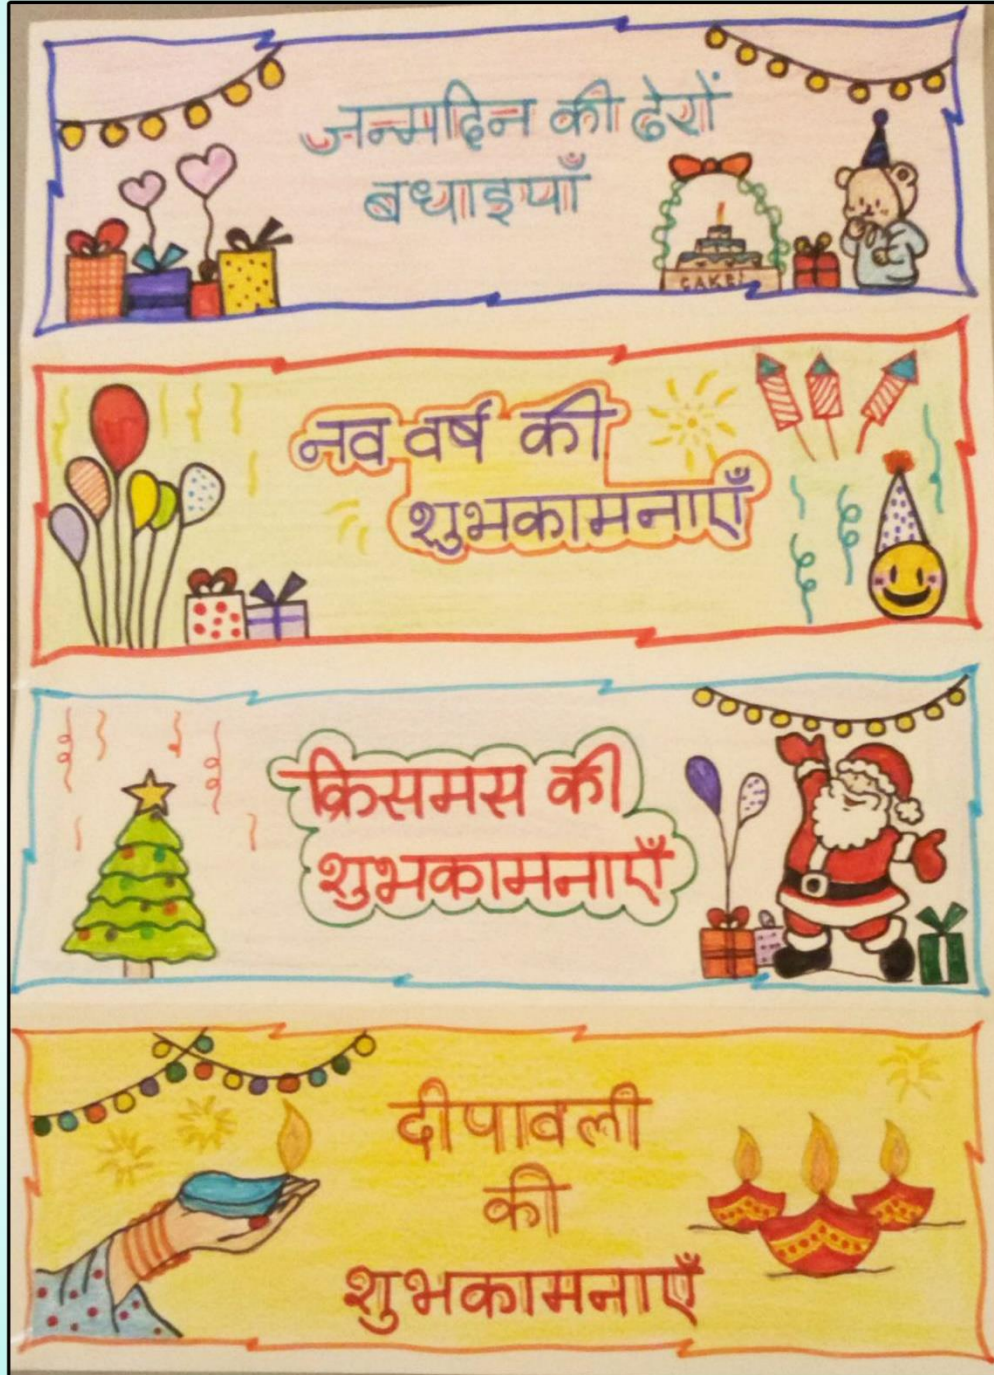 जन्मदिन की ढेरों
बधाइयाँ
CAKE!
नव वर्ष की
शुभकामनाएँ
क्रिसमस की
शुभकामनाएँ
दीपावली
की
शुभकामनाएँ